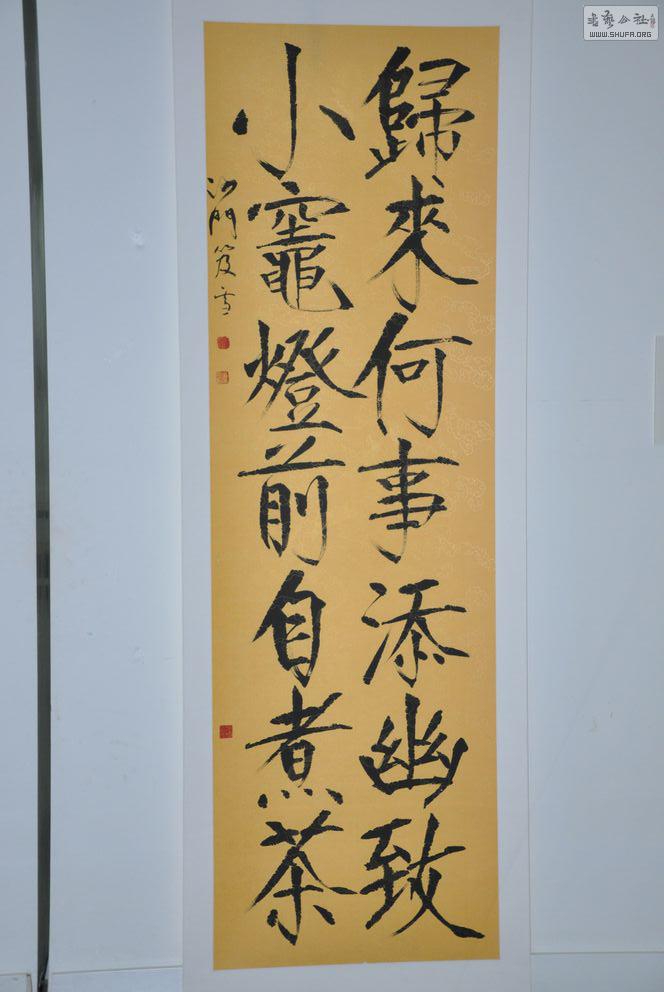 歸來何事添幽致
小竈燈前自煮茶
沙門笈雪
書藝公社
WWW.SHUFA.ORG